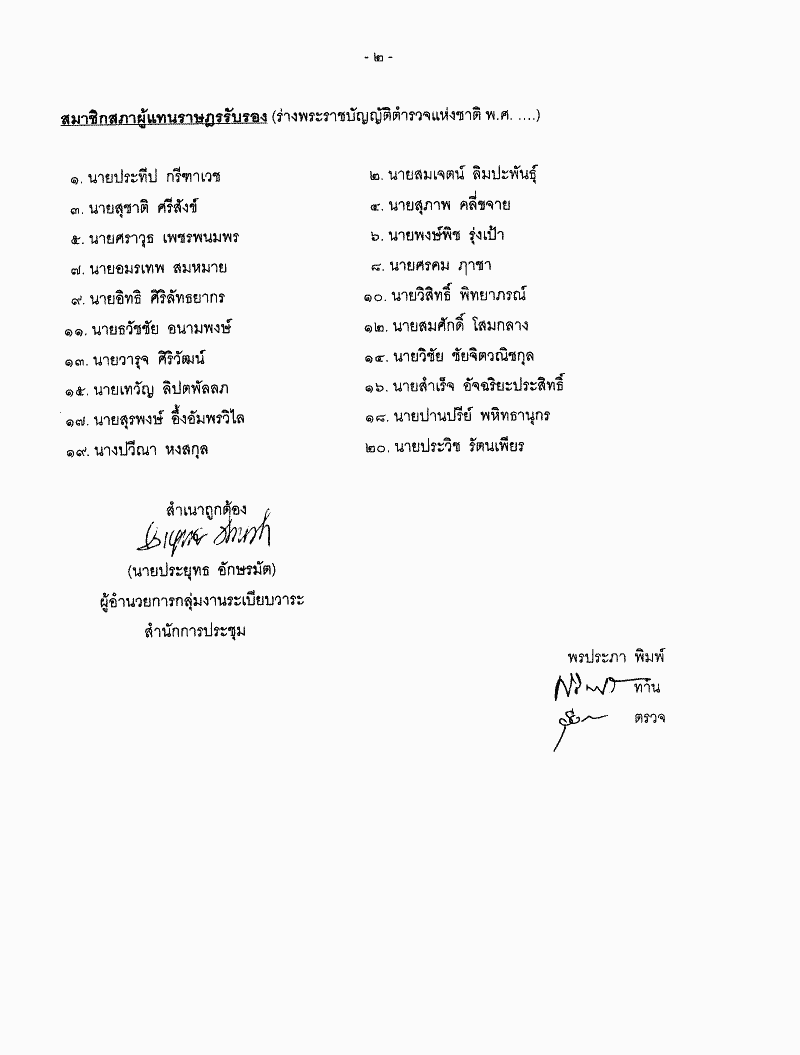 - ๒ -
สมาชิกสภาผู้แทนราษฎรรับรอง (ร่างพระราชบัญญัติตำรวจแห่งชาติ พ.ศ. ....)
๑. นายประทีป กรีฑาเวช ๒. นายสมเจตน์ ลิมปะพันธุ์
๓. นายสุชาติ ศรีสังข์ ๔. นายสุภาพ คลี่ขจาย
๕. นายศราวุธ เพชรพนมพร ๖. นายพงษ์พิช รุ่งเป้า
๗. นายอมรเทพ สมหมาย ๘. นายศรคม ฦาชา
๙. นายอิทธิ ศิริลัทธยากร ๑๐. นายวิสิทธิ์ พิทยาภรณ์
๑๑. นายธวัชชัย อนามพงษ์ ๑๒. นายสมศักดิ์ โสมกลาง
๑๓. นายวารุจ ศิริวัฒน์ ๑๔. นายวิชัย ชัยจิตวณิชกุล
๑๕. นายเทวัญ ลิปตพัลลภ ๑๖. นายสำเร็จ อัจฉริยะประสิทธิ์
๑๗. นายสุรพงษ์ อึ้งอัมพรวิไล ๑๘. นายปานปรีย์ พหิทธานุกร
๑๙. นางปวีณา หงสกุล ๒๐. นายประวิช รัตนเพียร
สำเนาถูกต้อง
(นายประยุทธ อักษรมัต)
ผู้อำนวยการกลุ่มงานระเบียบวาระ
สำนักการประชุม
พรประภา พิมพ์
ทาน
ตรวจ